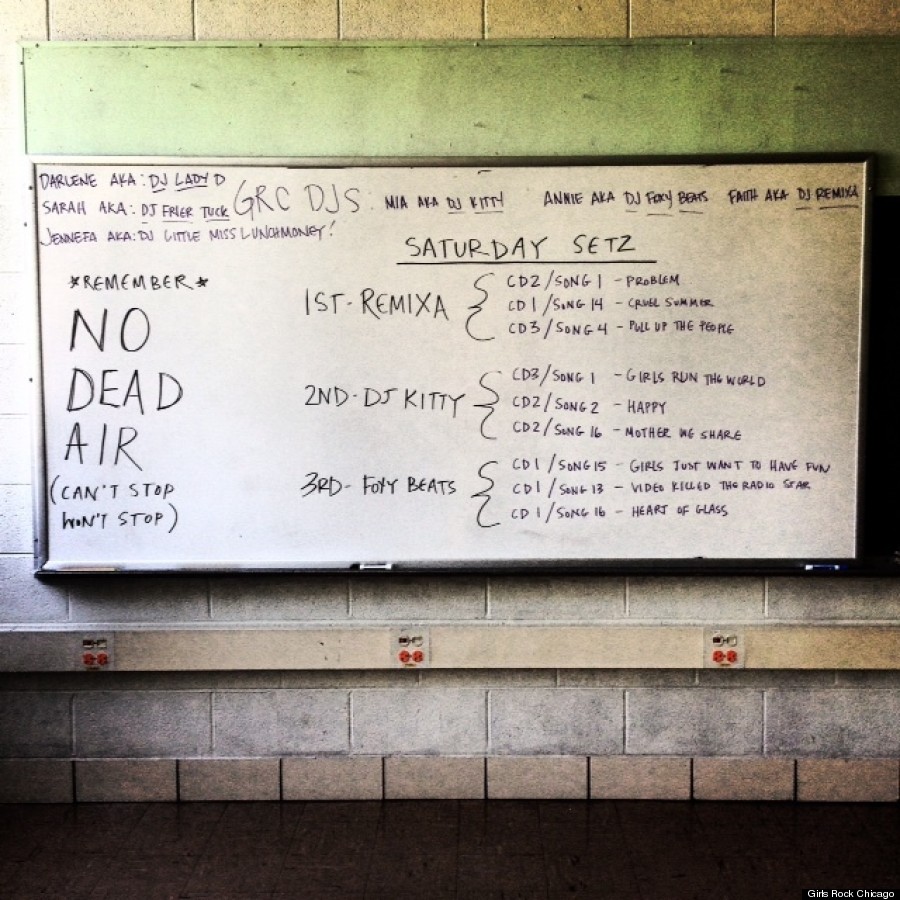 DARLENE AKA: DJ LADY D
SARAH AKA: DJ FRIER TUCK
JENNEFA AKA: DJ LITTLE MISS LUNCHMONEY!
GRC DJS: MIA AKA DJ KITTY ANNIE AKA DJ FOXY BEATS FAITH AKA DJ REMIXA
SATURDAY SETZ
*REMEMBER*
NO
DEAD
AIR
(CAN'T STOP
WON'T STOP)
1ST - REMIXA
CD2/SONG 1 - PROBLEM
CD1/SONG 14 - CRUEL SUMMER
CD3/SONG 4 - PULL UP THE PEOPLE
2ND - DJ KITTY
CD3/SONG 1 - GIRLS RUN THE WORLD
CD2/SONG 2 - HAPPY
CD2/SONG 16 - MOTHER WE SHARE
3RD - FOXY BEATS
CD1/SONG 15 - GIRLS JUST WANT TO HAVE FUN
CD1/SONG 13 - VIDEO KILLED THE RADIO STAR
CD1/SONG 16 - HEART OF GLASS
Girls Rock Chicago